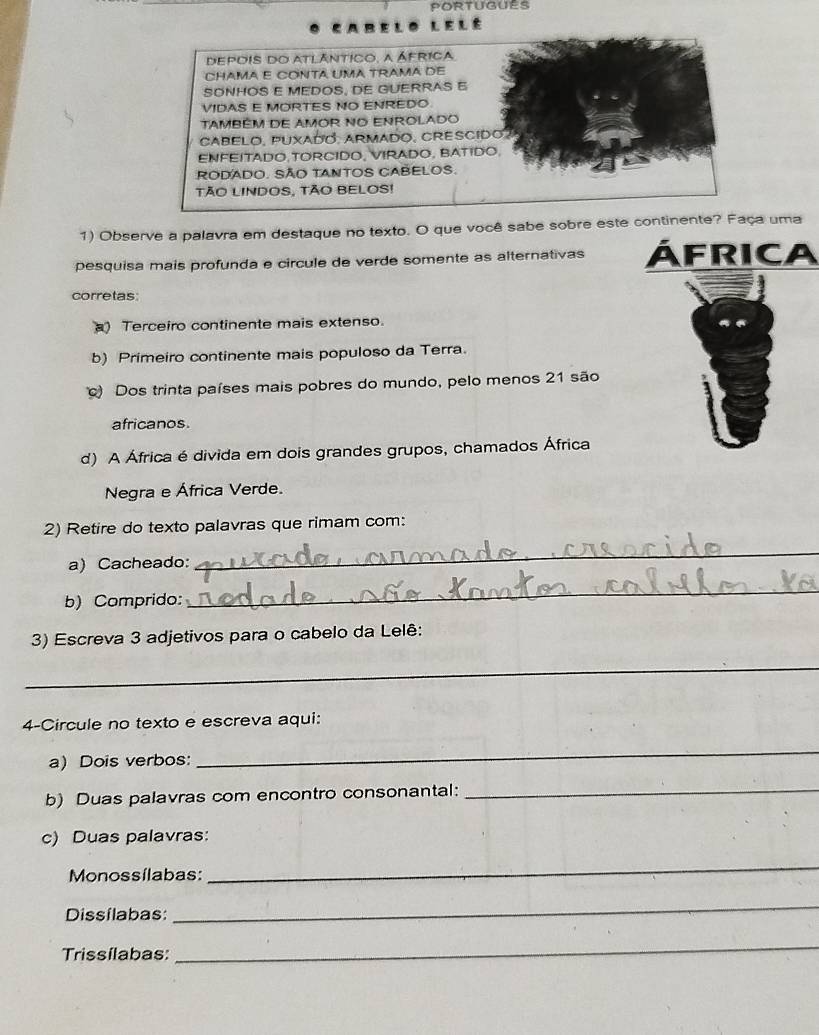 PORTUGUÊS
O CABELO LELÊ
DEPOIS DO ATLÂNTICO, A ÁFRICA
CHAMA E CONTA UMA TRAMA DE
SONHOS E MEDOS, DE GUERRAS E
VIDAS E MORTES NO ENREDO
TAMBÉM DE AMOR NO ENROLADO
CABELO, PUXADO, ARMADO, CRESCIDO
ENFEITADO,TORCIDO, VIRADO, BATIDO,
RODADO. SÃO TANTOS CABELOS.
TÃO LINDOS, TÃO BELOS!
1) Observe a palavra em destaque no texto. O que você sabe sobre este continente? Faça uma
pesquisa mais profunda e circule de verde somente as alternativas
corretas:
ÁFRICA
a) Terceiro continente mais extenso.
b) Primeiro continente mais populoso da Terra.
c) Dos trinta países mais pobres do mundo, pelo menos 21 são
africanos.
d) A África é divida em dois grandes grupos, chamados África
Negra e África Verde.
2) Retire do texto palavras que rimam com:
a) Cacheado: puxado, armado, crescido
b) Comprido: rodado. são tantos cabelos. ta
3) Escreva 3 adjetivos para o cabelo da Lelê:
4-Circule no texto e escreva aqui:
a) Dois verbos:
b) Duas palavras com encontro consonantal:
c) Duas palavras:
Monossílabas:
Dissílabas:
Trissílabas: